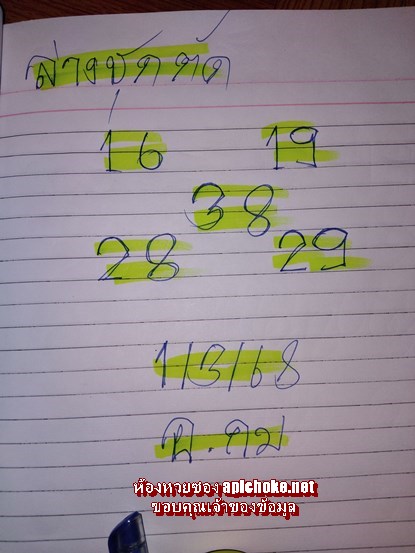 ล่างชัดตัด
16 19
38
28 29
1/3/68
น.คม
ห้องหวยซอง apichoke.net
ขอบคุณเจ้าของข้อมูล